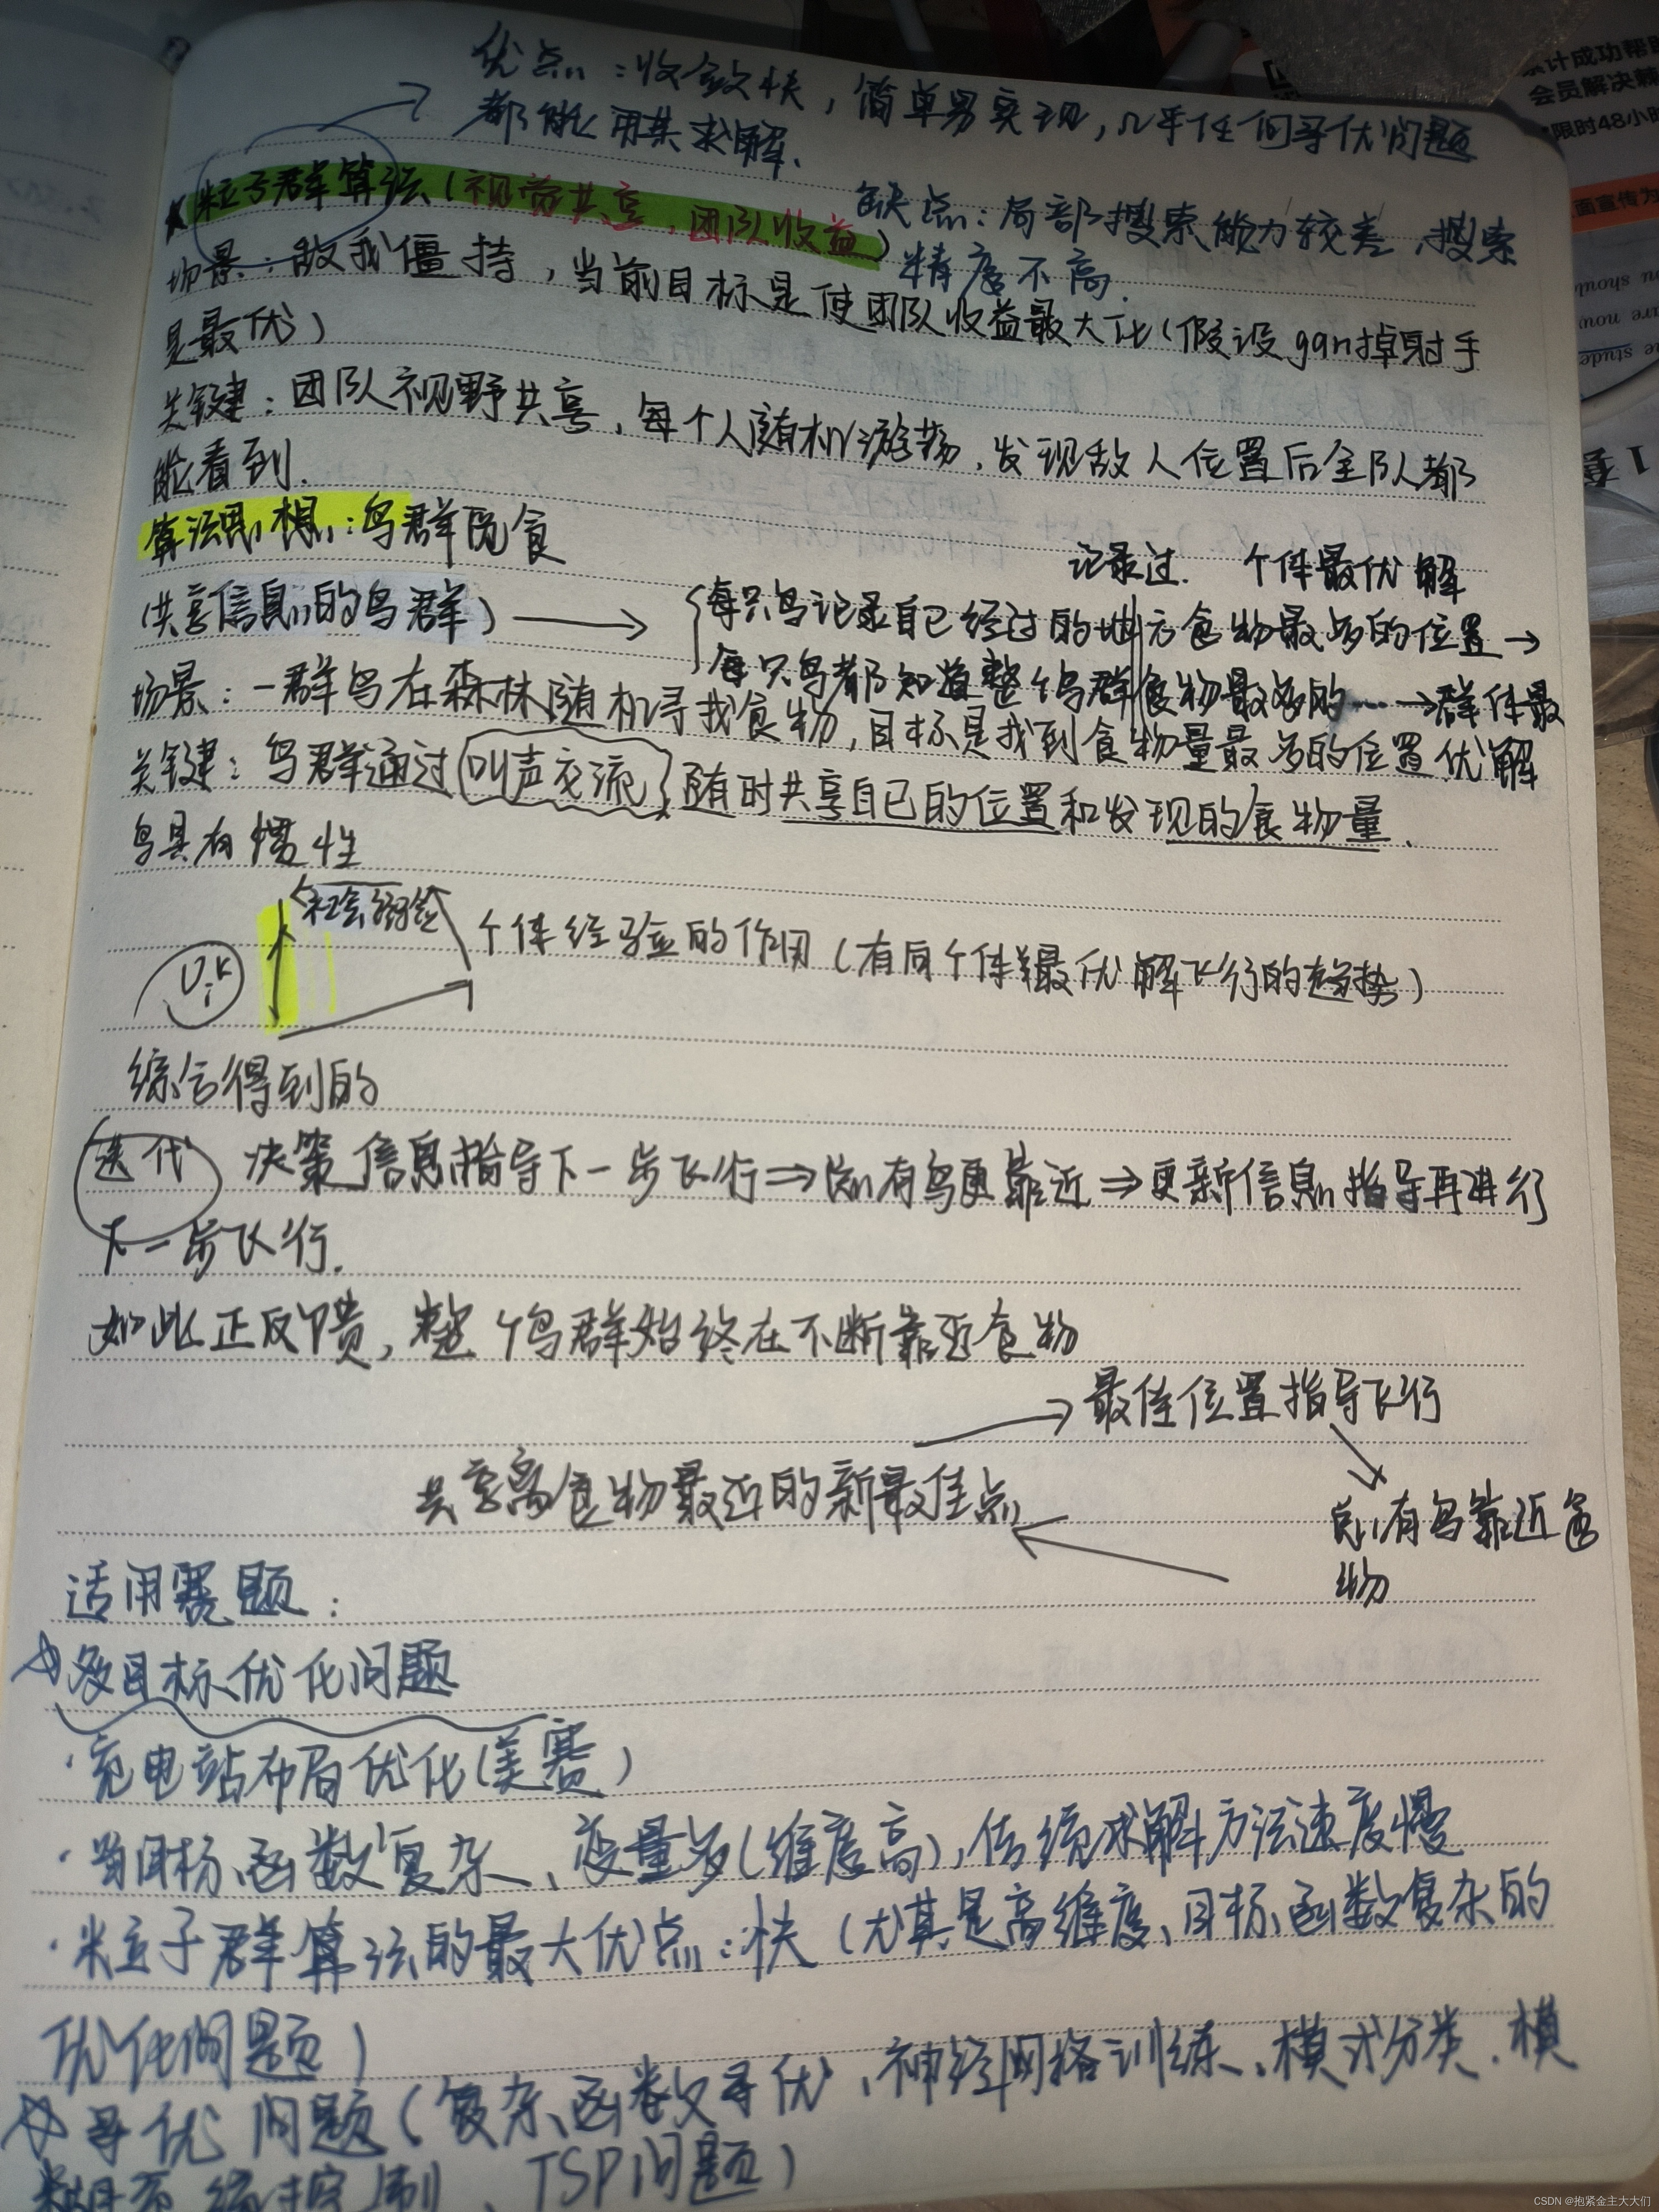 优点：收敛快，简单易实现，几乎任何寻优问题
都能用其求解.
粒子群算法（视觉共享，团队收益）
缺点：局部搜索能力较差，搜索
精度不高.
场景：敌我僵持，当前目标是使团队收益最大化（假设gan掉射手
是最优）
关键：团队视野共享，每个人随机游荡，发现敌人位置后全队都
能看到.
算法思想：鸟群觅食
记录过. 个体最优解
（共享信息的鸟群）→ {每只鸟记录自己经过的地方食物最多的位置→
每只鸟都知道整个鸟群食物最多的……→群体最
优解
场景：一群鸟在森林随机寻找食物，目标是找到食物量最多的位置
关键：鸟群通过叫声交流，随时共享自己的位置和发现的食物量.
鸟具有惯性
社会经验
个体经验的作用（有向个体最优解飞行的趋势）
综合得到的
迭代 决策信息指导下一步飞行⇒所有鸟更靠近⇒更新信息指导再进行
下一步飞行.
如此正反馈，整个鸟群始终在不断靠近食物
→最佳位置指导飞行
共享离食物最近的新最佳点
所有鸟靠近食
物
适用赛题：
多目标优化问题
·充电站布局优化（美赛）
·目标函数复杂、变量多（维度高），传统求解方法速度慢
·粒子群算法的最大优点：快（尤其是高维度、目标函数复杂的
优化问题）
寻优问题（复杂函数寻优、神经网络训练、模式分类、模
糊系统控制、TSP问题）
累计成功帮助
会员解决棘
限时48小时
面宣传为
CSDN @抱紧金主大大们